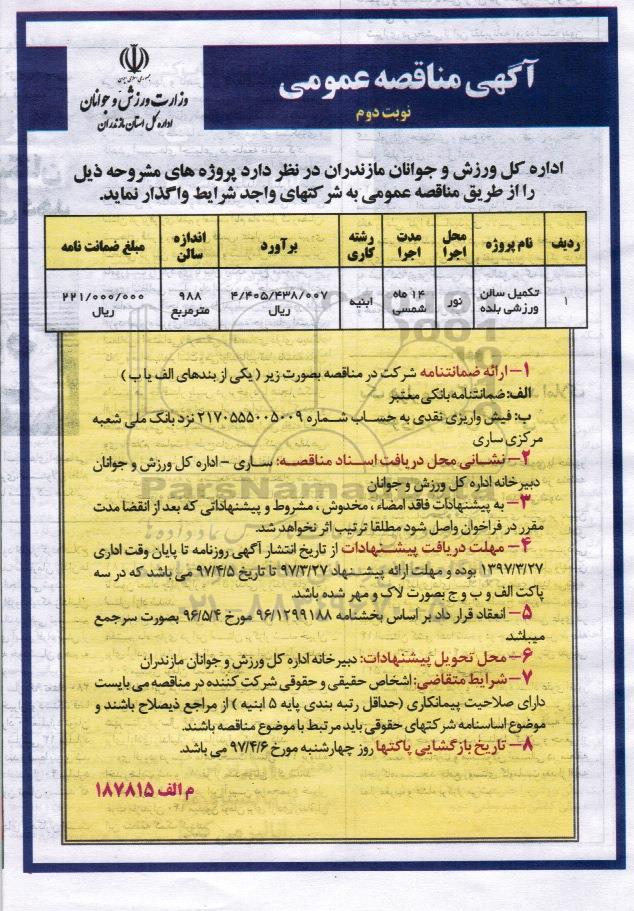 آگهی مناقصه عمومی
نوبت دوم
جمهوری اسلامی ایران
وزارت ورزش و جوانان
اداره کل استان مازندران
اداره کل ورزش و جوانان مازندران در نظر دارد پروژه های مشروحه ذیل
را از طریق مناقصه عمومی به شرکتهای واجد شرایط واگذار نماید.
ردیف نام پروژه محل اجرا مدت اجرا رشته کاری برآورد اندازه سالن مبلغ ضمانت نامه
۱ تکمیل سالن ورزشی بلده نور ۱۴ ماه شمسی ابنیه ۴/۴۰۵/۴۳۸/۰۰۷ ریال ۹۸۸ مترمربع ۲۲۱/۰۰۰/۰۰۰ ریال
۱- ارائه ضمانتنامه شرکت در مناقصه بصورت زیر ( یکی از بندهای الف یا ب )
الف: ضمانتنامه بانکی معتبر
ب: فیش واریزی نقدی به حساب شماره ۲۱۷۰۵۵۵۰۰۵۰۰۹ نزد بانک ملی شعبه
مرکزی ساری
۲- نشانی محل دریافت اسناد مناقصه: ساری - اداره کل ورزش و جوانان
دبیرخانه اداره کل ورزش و جوانان
ParsNamadData
۳- به پیشنهادات فاقد امضاء ، مخدوش ، مشروط و پیشنهاداتی که بعد از انقضا مدت
مقرر در فراخوان واصل شود مطلقا ترتیب اثر نخواهد شد.
۴- مهلت دریافت پیشنهادات از تاریخ انتشار آگهی روزنامه تا پایان وقت اداری
۱۳۹۷/۳/۲۷ بوده و مهلت ارائه پیشنهاد ۹۷/۳/۲۷ تا تاریخ ۹۷/۴/۵ می باشد که در سه
پاکت الف و ب و ج بصورت لاک و مهر شده باشد.
۵- انعقاد قرار داد بر اساس بخشنامه ۹۶/۱۲۹۹۱۸۸ مورخ ۹۶/۵/۴ بصورت سرجمع
میباشد
۶- محل تحویل پیشنهادات: دبیرخانه اداره کل ورزش و جوانان مازندران
۷- شرایط متقاضی: اشخاص حقیقی و حقوقی شرکت کننده در مناقصه می بایست
دارای صلاحیت پیمانکاری (حداقل رتبه بندی پایه ۵ ابنیه ) از مراجع ذیصلاح باشند و
موضوع اساسنامه شرکتهای حقوقی باید مرتبط با موضوع مناقصه باشند.
۸- تاریخ بازگشایی پاکتها روز چهارشنبه مورخ ۹۷/۴/۶ می باشد.
م الف ۱۸۷۸۱۵